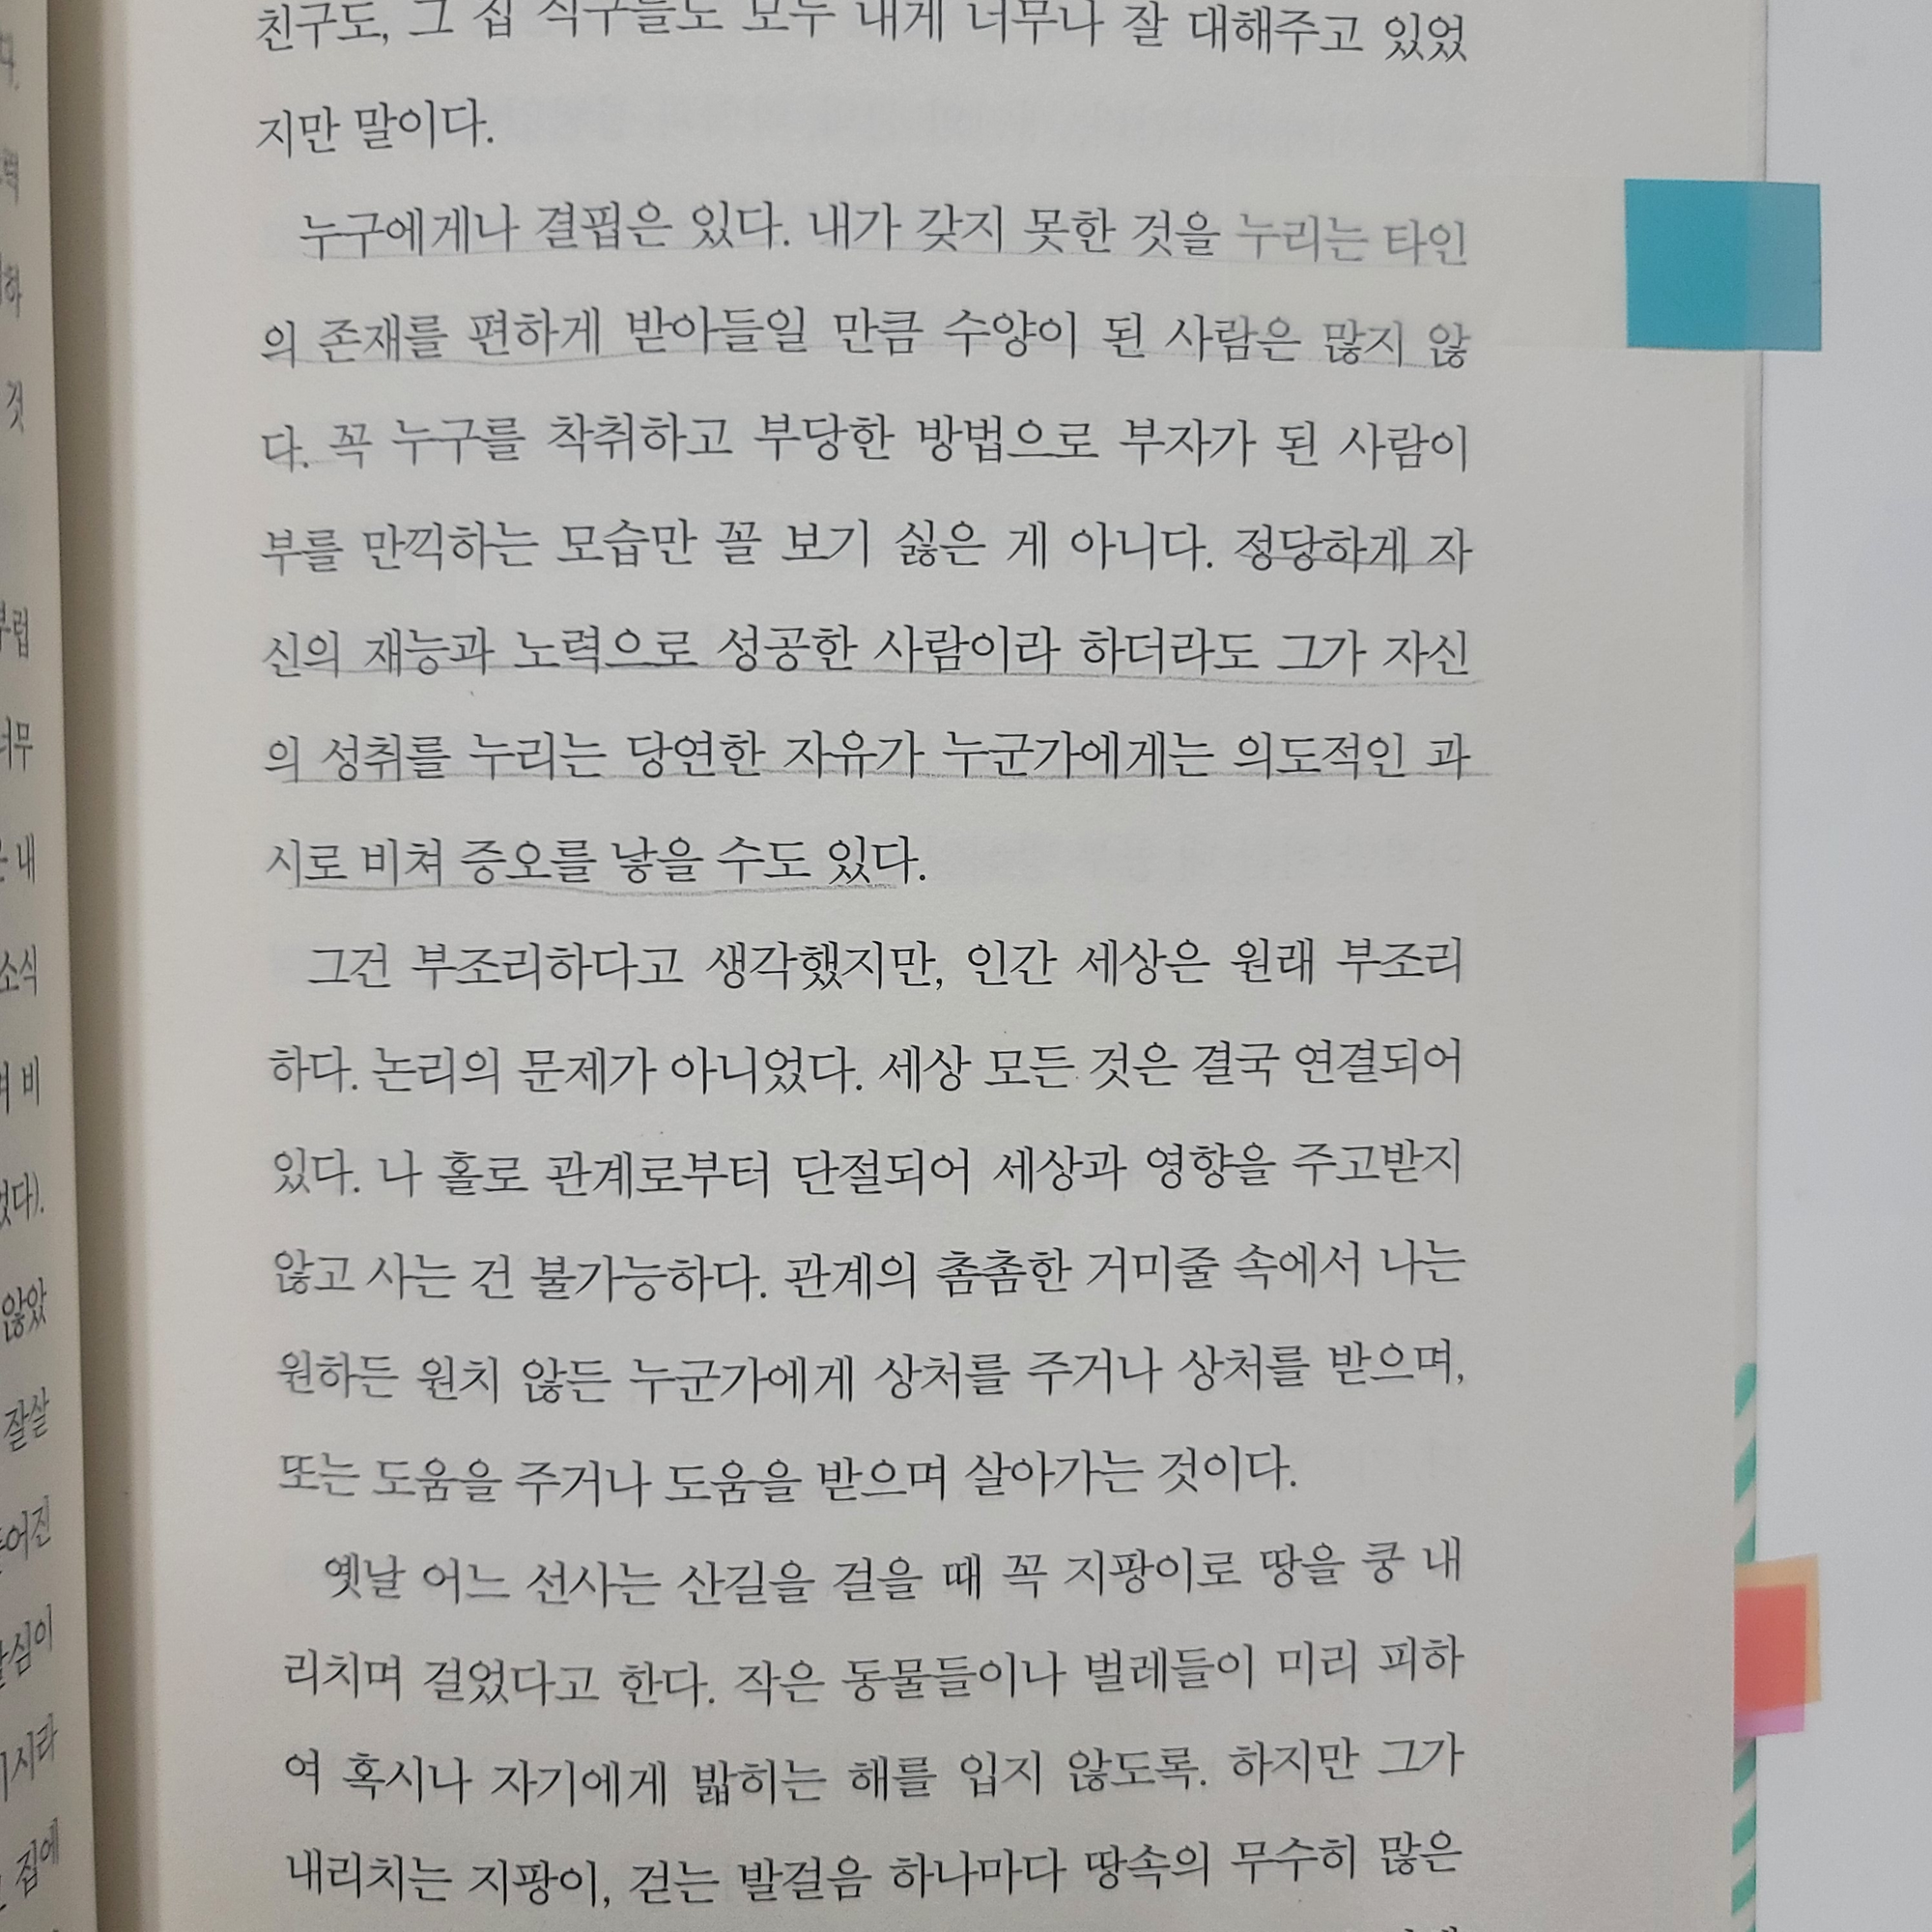 친구도, 그 집 식구들도 모두 내게 너무나 잘 대해주고 있었
지만 말이다.
누구에게나 결핍은 있다. 내가 갖지 못한 것을 누리는 타인
의 존재를 편하게 받아들일 만큼 수양이 된 사람은 많지 않
다. 꼭 누구를 착취하고 부당한 방법으로 부자가 된 사람이
부를 만끽하는 모습만 꼴 보기 싫은 게 아니다. 정당하게 자
신의 재능과 노력으로 성공한 사람이라 하더라도 그가 자신
의 성취를 누리는 당연한 자유가 누군가에게는 의도적인 과
시로 비쳐 증오를 낳을 수도 있다.
그건 부조리하다고 생각했지만, 인간 세상은 원래 부조리
하다. 논리의 문제가 아니었다. 세상 모든 것은 결국 연결되어
있다. 나 홀로 관계로부터 단절되어 세상과 영향을 주고받지
않고 사는 건 불가능하다. 관계의 촘촘한 거미줄 속에서 나는
원하든 원치 않든 누군가에게 상처를 주거나 상처를 받으며,
또는 도움을 주거나 도움을 받으며 살아가는 것이다.
옛날 어느 선사는 산길을 걸을 때 꼭 지팡이로 땅을 쿵 내
리치며 걸었다고 한다. 작은 동물들이나 벌레들이 미리 피하
여 혹시나 자기에게 밟히는 해를 입지 않도록. 하지만 그가
내리치는 지팡이, 걷는 발걸음 하나마다 땅속의 무수히 많은